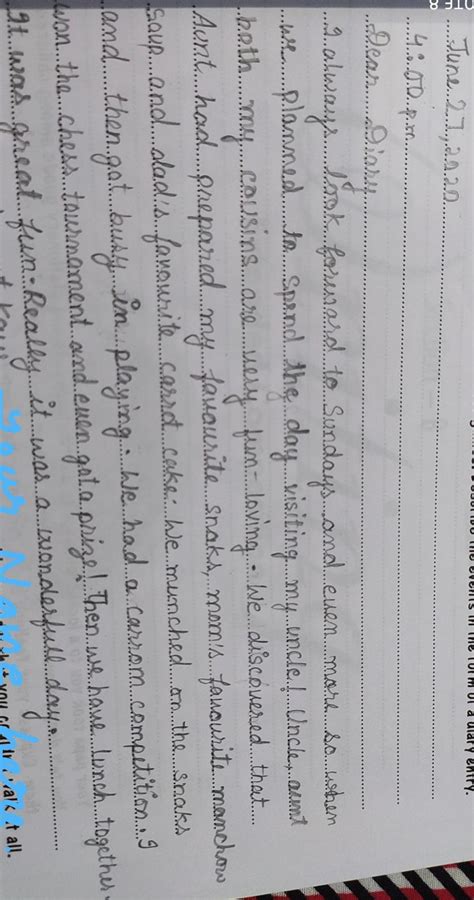 OTE 8
describe the events in the form of a diary entry.
June 27, 2020
4:00 p.m
Dear Diary
I always look forward to Sundays and even more so when
we planned to spend the day visiting my uncle! Uncle, aunt
both my cousins are very fun-loving. We discovered that
Aunt had prepared my favourite snaks, mom's favourite manchow
soup and dad's favourite carrot cake. We munched on the snaks
and then got busy in playing. We had a carrom competition. I
won the chess tournament and even got a prize! Then we have lunch together.
It was great fun. Really it was a wonderfull day.
Your Name
you
it all.